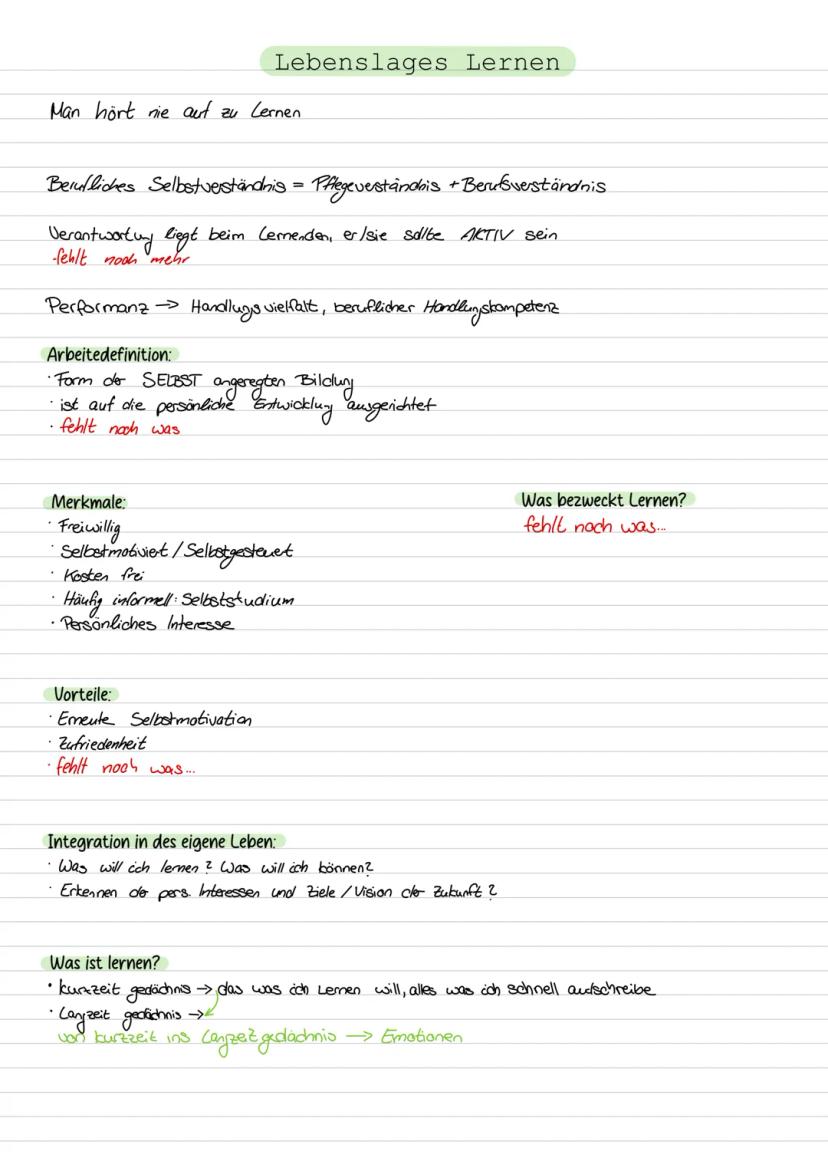 Lebenslages Lernen
Man hört nie auf zu Lernen
Berufliches Selbstverständnis = Pflegeverständnis + Berufsverständnis
Verantwortung liegt beim Lernenden, er/sie sollte AKTIV sein
-fehlt noch mehr
Performanz → Handlungsvielfalt, beruflicher Handlungskompetenz
Arbeitedefinition:
· Form der SELBST angeregten Bildung
· ist auf die persönliche Entwicklung ausgerichtet
· fehlt noch was
Merkmale:
· Freiwillig
· Selbstmotiviert / Selbstgesteuert
· Kosten frei
· Häufig informell: Selbststudium
· Persönliches Interesse
Was bezweckt Lernen?
fehlt noch was...
Vorteile:
· Erneute Selbstmotivation
· Zufriedenheit
· fehlt noch was...
Integration in des eigene Leben:
· Was will ich lernen? Was will ich können?
· Erkennen der pers. Interessen und Ziele / Vision der Zukunft?
Was ist lernen?
· kurzzeit gedächnis → das was ich Lernen will, alles was ich schnell aufschreibe
· Langzeit gedächnis →
von kurzzeit ins Langzeitgedächnis → Emotionen